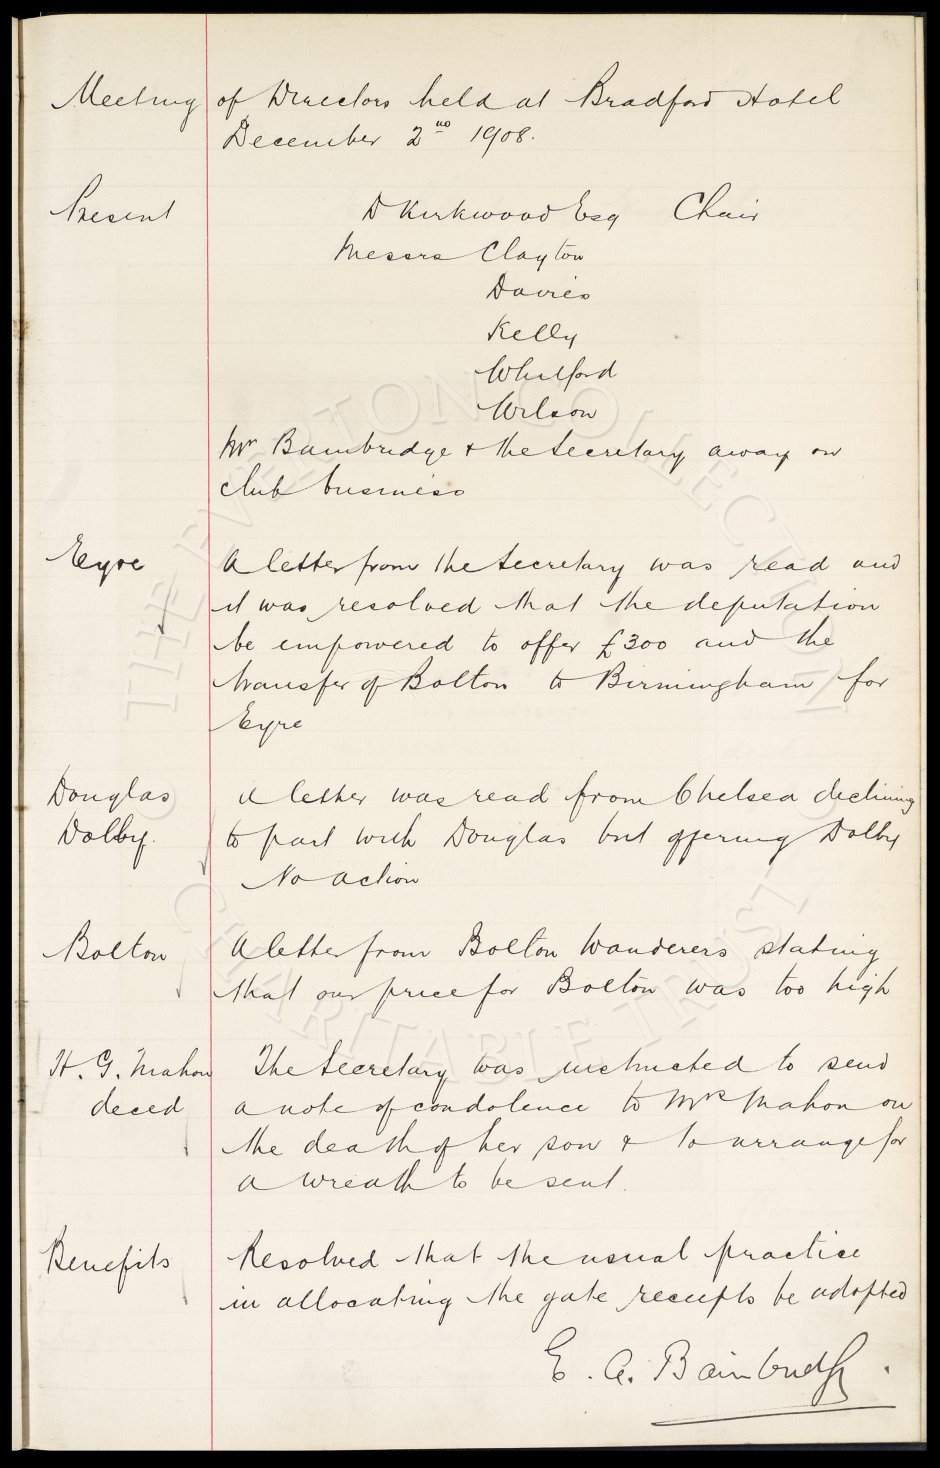 Meeting of Directors held at Bradford Hotel
December 2nd 1908.
Present D Kirkwood Esq Chair
Messrs Clayton
Davies
Kelly
Whitford
Wilson
Mr Bainbridge & the Secretary away on
club business
Eyre A letter from the Secretary was read and
it was resolved that the deputation
be empowered to offer £300 and the
transfer of Bolton to Birmingham for
Eyre
Douglas A letter was read from Chelsea declining
Dolby. to part with Douglas but offering Dolby
No action
Bolton A letter from Bolton Wanderers stating
that our price for Bolton was too high
H. G. Mahon The Secretary was instructed to send
deced a note of condolence to Mrs Mahon on
the death of her son & to arrange for
a wreath to be sent.
Benefits Resolved that the usual practice
in allocating the gate receipts be adopted
E. A. Bainbridge.
THE EVERTON COLLECTION
CHARITABLE TRUST